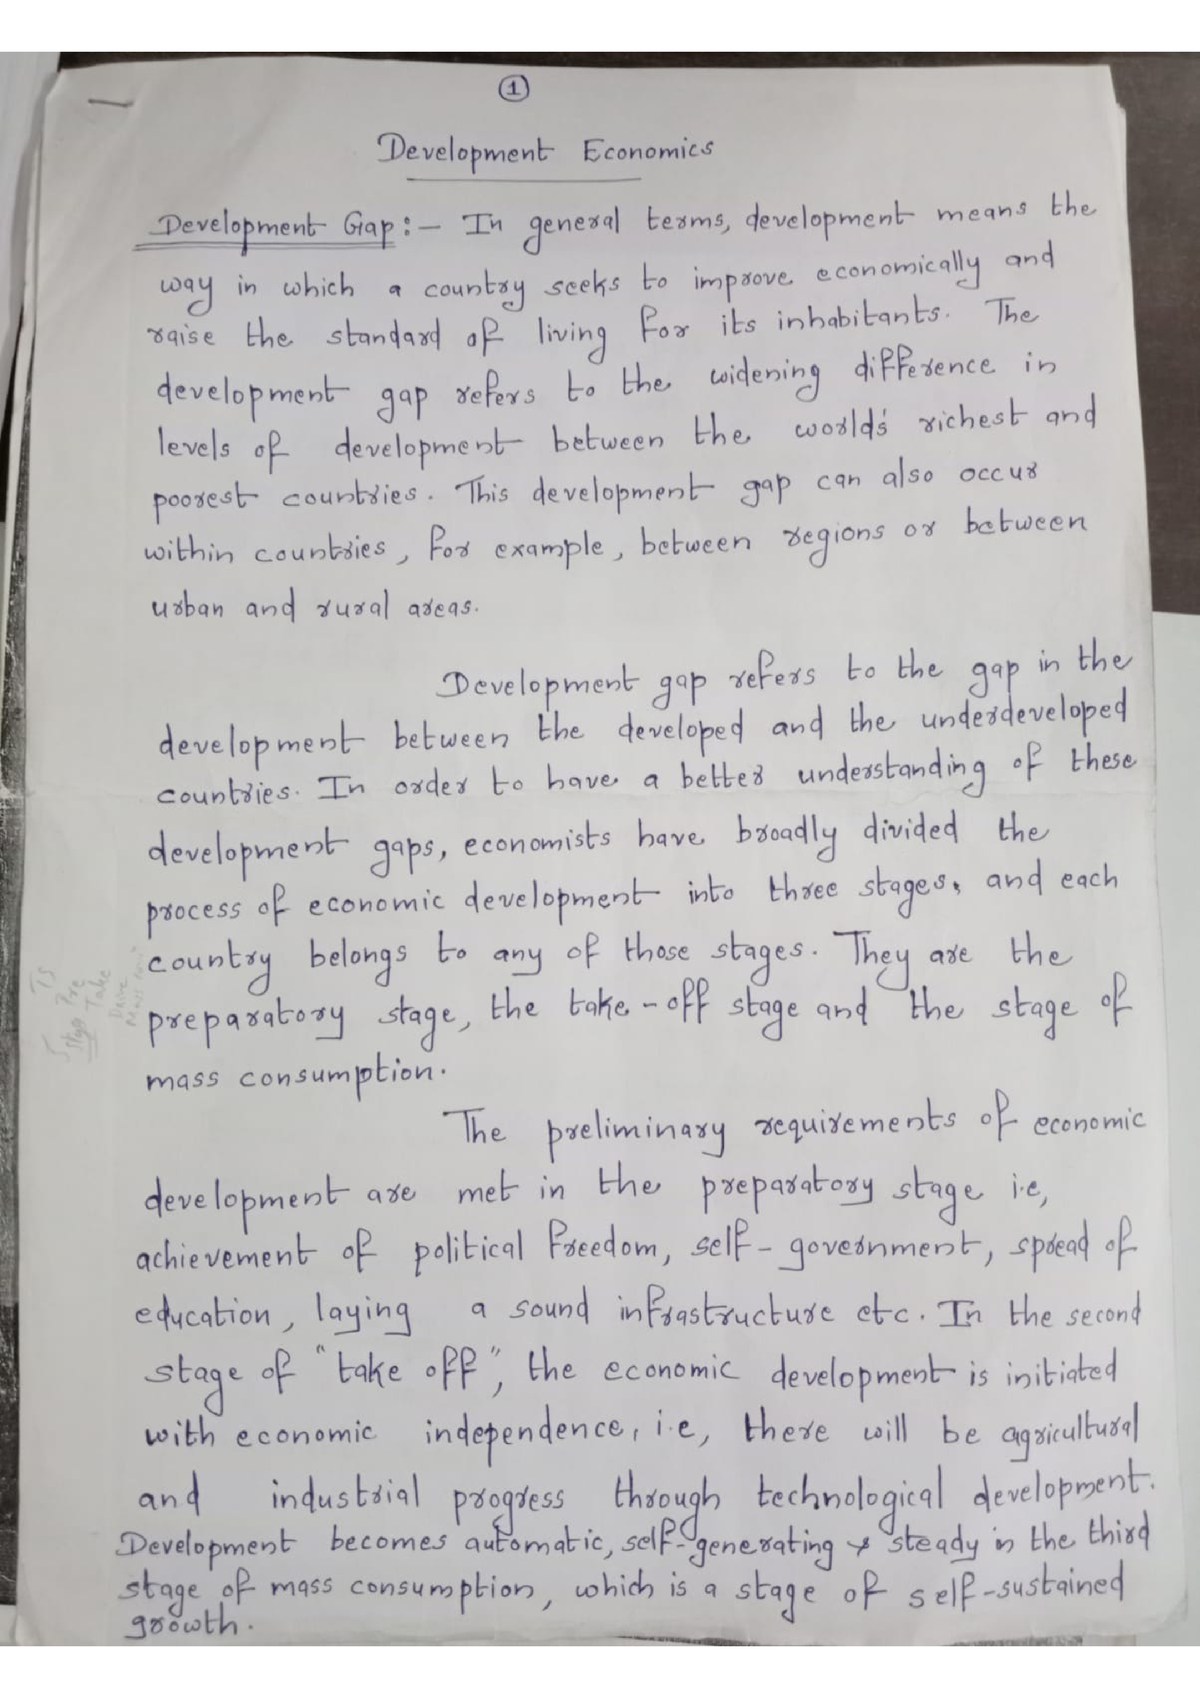 1
Development Economics
Development Gap:- In general terms, development means the
way in which a country seeks to improve economically and
raise the standard of living for its inhabitants. The
development gap refers to the widening difference in
levels of development between the world's richest and
poorest countries. This development gap can also occur
within countries, for example, between regions or between
urban and rural areas.
Development gap refers to the gap in the
development between the developed and the underdeveloped
countries. In order to have a better understanding of these
development gaps, economists have broadly divided the
process of economic development into three stages, and each
country belongs to any of those stages. They are the
preparatory stage, the take-off stage and the stage of
mass consumption.
The preliminary requirements of economic
development are met in the preparatory stage i.e,
achievement of political freedom, self-government, spread of
education, laying a sound infrastructure etc. In the second
stage of "take off", the economic development is initiated
with economic independence, i.e, there will be agricultural
and industrial progress through technological development.
Development becomes automatic, self-generating & steady in the third
stage of mass consumption, which is a stage of self-sustained
growth.
TS
Pre
Stage Take
Drive